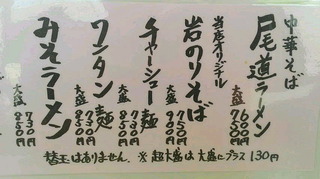 中華そば
尾道ラーメン 600円
大盛 700円
当店オリジナル
岩のりそば 750円
大盛 900円
チャーシュー麺 730円
大盛 850円
ワンタン麺 730円
大盛 850円
みそラーメン 730円
大盛 850円
替玉はありません。※超大盛は大盛にプラス130円